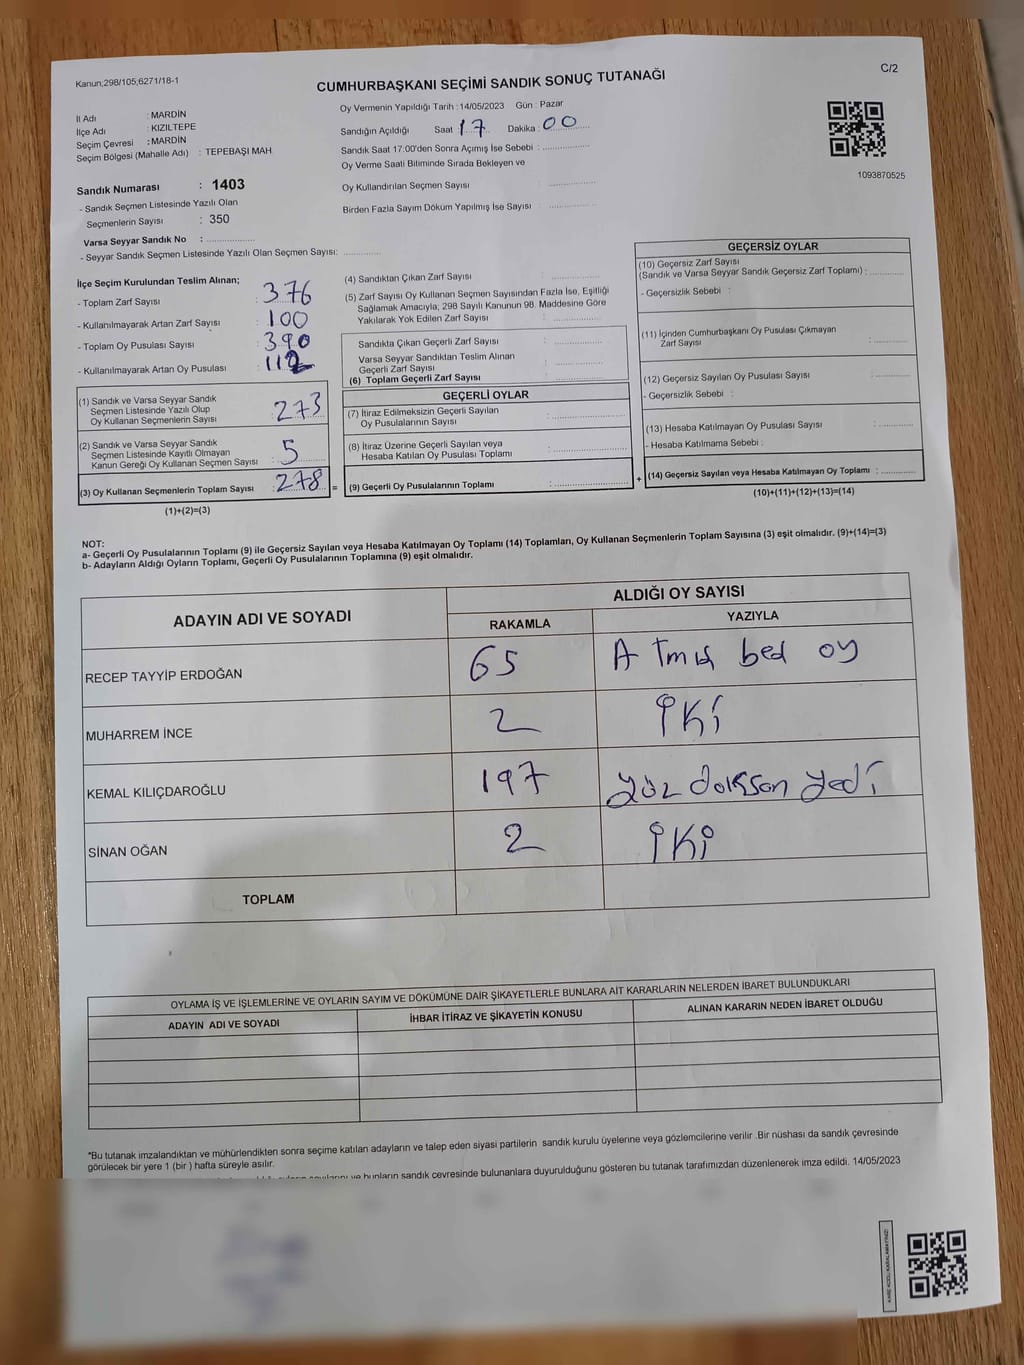 Kanun;298/105;6271/18-1
C/2
CUMHURBAŞKANI SEÇİMİ SANDIK SONUÇ TUTANAĞI
İl Adı : MARDİN
İlçe Adı : KIZILTEPE
Seçim Çevresi : MARDİN
Seçim Bölgesi (Mahalle Adı) : TEPEBAŞI MAH
Oy Vermenin Yapıldığı Tarih : 14/05/2023 Gün : Pazar
Sandığın Açıldığı Saat 17 Dakika : 00
Sandık Saat 17:00'den Sonra Açımış İse Sebebi :
Oy Verme Saati Bitiminde Sırada Bekleyen ve
Oy Kullandırılan Seçmen Sayısı :
Birden Fazla Sayım Döküm Yapılmış İse Sayısı :
1093870525
Sandık Numarası : 1403
- Sandık Seçmen Listesinde Yazılı Olan
Seçmenlerin Sayısı : 350
Varsa Seyyar Sandık No :
- Seyyar Sandık Seçmen Listesinde Yazılı Olan Seçmen Sayısı:
İlçe Seçim Kurulundan Teslim Alınan;
- Toplam Zarf Sayısı : 376
- Kullanılmayarak Artan Zarf Sayısı : 100
- Toplam Oy Pusulası Sayısı : 390
- Kullanılmayarak Artan Oy Pusulası : 112
(1) Sandık ve Varsa Seyyar Sandık
Seçmen Listesinde Yazılı Olup
Oy Kullanan Seçmenlerin Sayısı : 273
(2) Sandık ve Varsa Seyyar Sandık
Seçmen Listesinde Kayıtlı Olmayan
Kanun Gereği Oy Kullanan Seçmen Sayısı : 5
(3) Oy Kullanan Seçmenlerin Toplam Sayısı : 278 =
(1)+(2)=(3)
(4) Sandıktan Çıkan Zarf Sayısı :
(5) Zarf Sayısı Oy Kullanan Seçmen Sayısından Fazla İse, Eşitliği
Sağlamak Amacıyla; 298 Sayılı Kanunun 98. Maddesine Göre
Yakılarak Yok Edilen Zarf Sayısı :
Sandıkta Çıkan Geçerli Zarf Sayısı :
Varsa Seyyar Sandıktan Teslim Alınan
Geçerli Zarf Sayısı :
(6) Toplam Geçerli Zarf Sayısı :
GEÇERLİ OYLAR
(7) İtiraz Edilmeksizin Geçerli Sayılan
Oy Pusulalarının Sayısı :
(8) İtiraz Üzerine Geçerli Sayılan veya
Hesaba Katılan Oy Pusulası Toplamı :
(9) Geçerli Oy Pusulalarının Toplamı : +
GEÇERSİZ OYLAR
(10) Geçersiz Zarf Sayısı
(Sandık ve Varsa Seyyar Sandık Geçersiz Zarf Toplamı) :
- Geçersizlik Sebebi :
(11) İçinden Cumhurbaşkanı Oy Pusulası Çıkmayan
Zarf Sayısı :
(12) Geçersiz Sayılan Oy Pusulası Sayısı :
- Geçersizlik Sebebi :
(13) Hesaba Katılmayan Oy Pusulası Sayısı :
- Hesaba Katılmama Sebebi :
(14) Geçersiz Sayılan veya Hesaba Katılmayan Oy Toplamı :
(10)+(11)+(12)+(13)=(14)
NOT:
a- Geçerli Oy Pusulalarının Toplamı (9) ile Geçersiz Sayılan veya Hesaba Katılmayan Oy Toplamı (14) Toplamları, Oy Kullanan Seçmenlerin Toplam Sayısına (3) eşit olmalıdır. (9)+(14)=(3)
b- Adayların Aldığı Oyların Toplamı, Geçerli Oy Pusulalarının Toplamına (9) eşit olmalıdır.
ADAYIN ADI VE SOYADI
ALDIĞI OY SAYISI
RAKAMLA YAZIYLA
RECEP TAYYİP ERDOĞAN 65 Atmış beş oy
MUHARREM İNCE 2 iki
KEMAL KILIÇDAROĞLU 197 yüz doksan yedi
SİNAN OĞAN 2 iki
TOPLAM
OYLAMA İŞ VE İŞLEMLERİNE VE OYLARIN SAYIM VE DÖKÜMÜNE DAİR ŞİKAYETLERLE BUNLARA AİT KARARLARIN NELERDEN İBARET BULUNDUKLARI
ADAYIN ADI VE SOYADI İHBAR İTİRAZ VE ŞİKAYETİN KONUSU ALINAN KARARIN NEDEN İBARET OLDUĞU
*Bu tutanak imzalandıktan ve mühürlendikten sonra seçime katılan adayların ve talep eden siyasi partilerin sandık kurulu üyelerine veya gözlemcilerine verilir .Bir nüshası da sandık çevresinde
görülecek bir yere 1 (bir ) hafta süreyle asılır.
ve bunların sandık çevresinde bulunanlara duyurulduğunu gösteren bu tutanak tarafımızdan düzenlenerek imza edildi. 14/05/2023